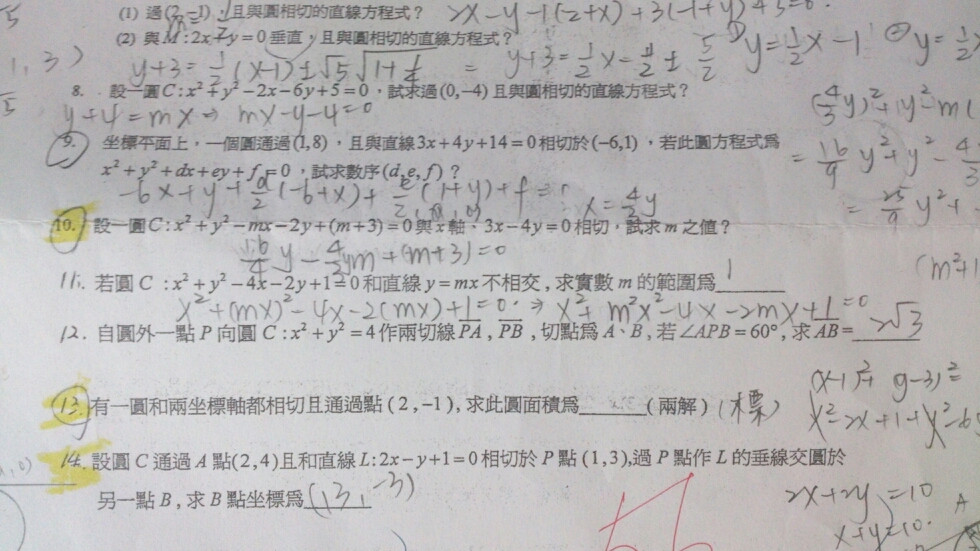 (1) 過(2,-1),且與圓相切的直線方程式? 2x-y-1(2+x)+3(-1+y)+5=0.
(2) 與M:2x+y=0垂直,且與圓相切的直線方程式?
y+3=1/2(x-1)±√5√1+1/4 = y+3=1/2x-1/2±5/2 ① y=1/2x-1 ② y=1/2x
8. 設一圓C:x²+y²-2x-6y+5=0,試求過(0,-4)且與圓相切的直線方程式?
y+4=mx⇒ mx-y-4=0
9. 坐標平面上,一個圓通過(1,8),且與直線3x+4y+14=0相切於(-6,1),若此圓方程式為
x²+y²+dx+ey+f=0,試求數序(d,e,f)?
-6x+y+d/2(-6+x)+e/2(1+y)+f=0
x=4/3y
10. 設一圓C:x²+y²-mx-2y+(m+3)=0與x軸、3x-4y=0相切,試求m之值?
11. 若圓 C :x²+y²-4x-2y+1=0和直線y=mx不相交,求實數m的範圍為 1
x²+(mx)²-4x-2(mx)+1=0. ⇒ x²+m²x²-4x-2mx+1=0
12. 自圓外一點P向圓 C:x²+y²=4作兩切線PA, PB ,切點為A、B,若∠APB=60°,求AB= 2√3
13. 有一圓和兩坐標軸都相切且通過點(2,-1),求此圓面積為______(兩解)(木票)
14. 設圓C通過A點(2,4)且和直線L:2x-y+1=0相切於P點(1,3),過P點作L的垂線交圓於
另一點B,求B點坐標為 (13,-3)
2x+2y=10
x+y=10.
A